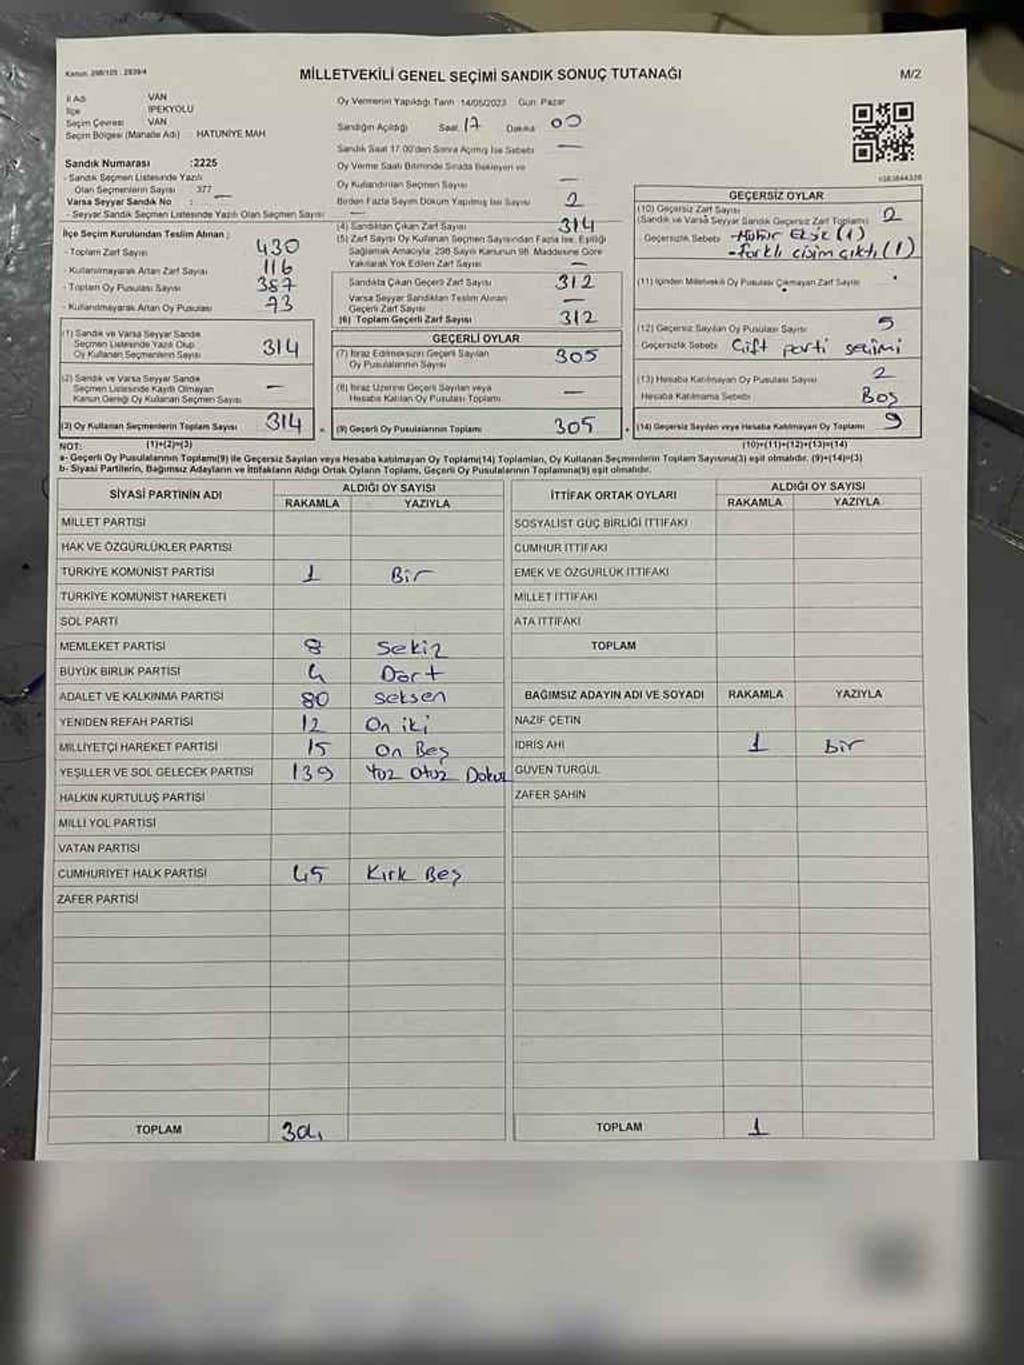 Kanun: 298/105 - 2839/4
MİLLETVEKİLİ GENEL SEÇİMİ SANDIK SONUÇ TUTANAĞI
M/2
İl Adı VAN
İlçe İPEKYOLU
Seçim Çevresi VAN
Seçim Bölgesi (Mahalle Adı) : HATUNİYE MAH
Sandık Numarası :2225
- Sandık Seçmen Listesinde Yazılı
Olan Seçmenlerin Sayısı 377
Varsa Seyyar Sandık No : —
- Seyyar Sandık Seçmen Listesinde Yazılı Olan Seçmen Sayısı —
İlçe Seçim Kurulundan Teslim Alınan :
- Toplam Zarf Sayısı 430
- Kullanılmayarak Artan Zarf Sayısı 116
- Toplam Oy Pusulası Sayısı 387
- Kullanılmayarak Artan Oy Pusulası 73
(1) Sandık ve Varsa Seyyar Sandık
Seçmen Listesinde Yazılı Olup
Oy Kullanan Seçmenlerin Sayısı 314
(2) Sandık ve Varsa Seyyar Sandık
Seçmen Listesinde Kaydı Olmayan
Kanun Gereği Oy Kullanan Seçmen Sayısı —
(3) Oy Kullanan Seçmenlerin Toplam Sayısı 314
Oy Vermenin Yapıldığı Tarih 14/05/2023 Gün: Pazar
Sandığın Açıldığı Saat: 17 Dakika 00
Sandık Saat 17.00'den Sonra Açılmış İse Sebebi —
Oy Verme Saati Bitiminde Sırada Bekleyen ve
Oy Kullandırılan Seçmen Sayısı —
Birden Fazla Sayım Döküm Yapılmış İse Sayısı 2
(4) Sandıktan Çıkan Zarf Sayısı 314
(5) Zarf Sayısı Oy Kullanan Seçmen Sayısından Fazla İse, Eşitliği
Sağlamak Amacıyla, 298 Sayılı Kanunun 98. Maddesine Göre
Yakılarak Yok Edilen Zarf Sayısı —
Sandıkta Çıkan Geçerli Zarf Sayısı 312
Varsa Seyyar Sandıktan Teslim Alınan
Geçerli Zarf Sayısı —
(6) Toplam Geçerli Zarf Sayısı 312
GEÇERLİ OYLAR
(7) İtiraz Edilmeksizin Geçerli Sayılan
Oy Pusulalarının Sayısı 305
(8) İtiraz Üzerine Geçerli Sayılan veya
Hesaba Katılan Oy Pusulası Toplamı —
(9) Geçerli Oy Pusulalarının Toplamı 305
1083844328
GEÇERSİZ OYLAR
(10) Geçersiz Zarf Sayısı
(Sandık ve Varsa Seyyar Sandık Geçersiz Zarf Toplamı) 2
Geçersizlik Sebebi -Mühür Eksik (1)
-farklı cisim çıktı (1)
(11) İçinden Milletvekili Oy Pusulası Çıkmayan Zarf Sayısı
(12) Geçersiz Sayılan Oy Pusulası Sayısı 5
Geçersizlik Sebebi Çift parti seçimi
(13) Hesaba Katılmayan Oy Pusulası Sayısı 2
Hesaba Katılmama Sebebi Boş
(14) Geçersiz Sayılan veya Hesaba Katılmayan Oy Toplamı 9
NOT: (1)+(2)=(3) (10)+(11)+(12)+(13)=(14)
a- Geçerli Oy Pusulalarının Toplamı(9) ile Geçersiz Sayılan veya Hesaba katılmayan Oy Toplamı(14) Toplamları, Oy Kullanan Seçmenlerin Toplam Sayısına(3) eşit olmalıdır. (9)+(14)=(3)
b- Siyasi Partilerin, Bağımsız Adayların ve İttifakların Aldığı Ortak Oyların Toplamı, Geçerli Oy Pusulalarının Toplamına(9) eşit olmalıdır.
SİYASİ PARTİNİN ADI ALDIĞI OY SAYISI
RAKAMLA YAZIYLA
MİLLET PARTİSİ
HAK VE ÖZGÜRLÜKLER PARTİSİ
TÜRKİYE KOMÜNİST PARTİSİ 1 Bir
TÜRKİYE KOMÜNİST HAREKETİ
SOL PARTİ
MEMLEKET PARTİSİ 8 Sekiz
BÜYÜK BİRLİK PARTİSİ 4 Dört
ADALET VE KALKINMA PARTİSİ 80 Seksen
YENİDEN REFAH PARTİSİ 12 On iki
MİLLİYETÇİ HAREKET PARTİSİ 15 On Beş
YEŞİLLER VE SOL GELECEK PARTİSİ 139 Yüz Otuz Dokuz
HALKIN KURTULUŞ PARTİSİ
MİLLİ YOL PARTİSİ
VATAN PARTİSİ
CUMHURİYET HALK PARTİSİ 45 Kırk Beş
ZAFER PARTİSİ
TOPLAM
İTTİFAK ORTAK OYLARI ALDIĞI OY SAYISI
RAKAMLA YAZIYLA
SOSYALİST GÜÇ BİRLİĞİ İTTİFAKI
CUMHUR İTTİFAKI
EMEK VE ÖZGÜRLÜK İTTİFAKI
MİLLET İTTİFAKI
ATA İTTİFAKI
TOPLAM
BAĞIMSIZ ADAYIN ADI VE SOYADI RAKAMLA YAZIYLA
NAZİF ÇETİN
İDRİS AHİ 1 bir
GÜVEN TURGUL
ZAFER ŞAHİN
TOPLAM 1